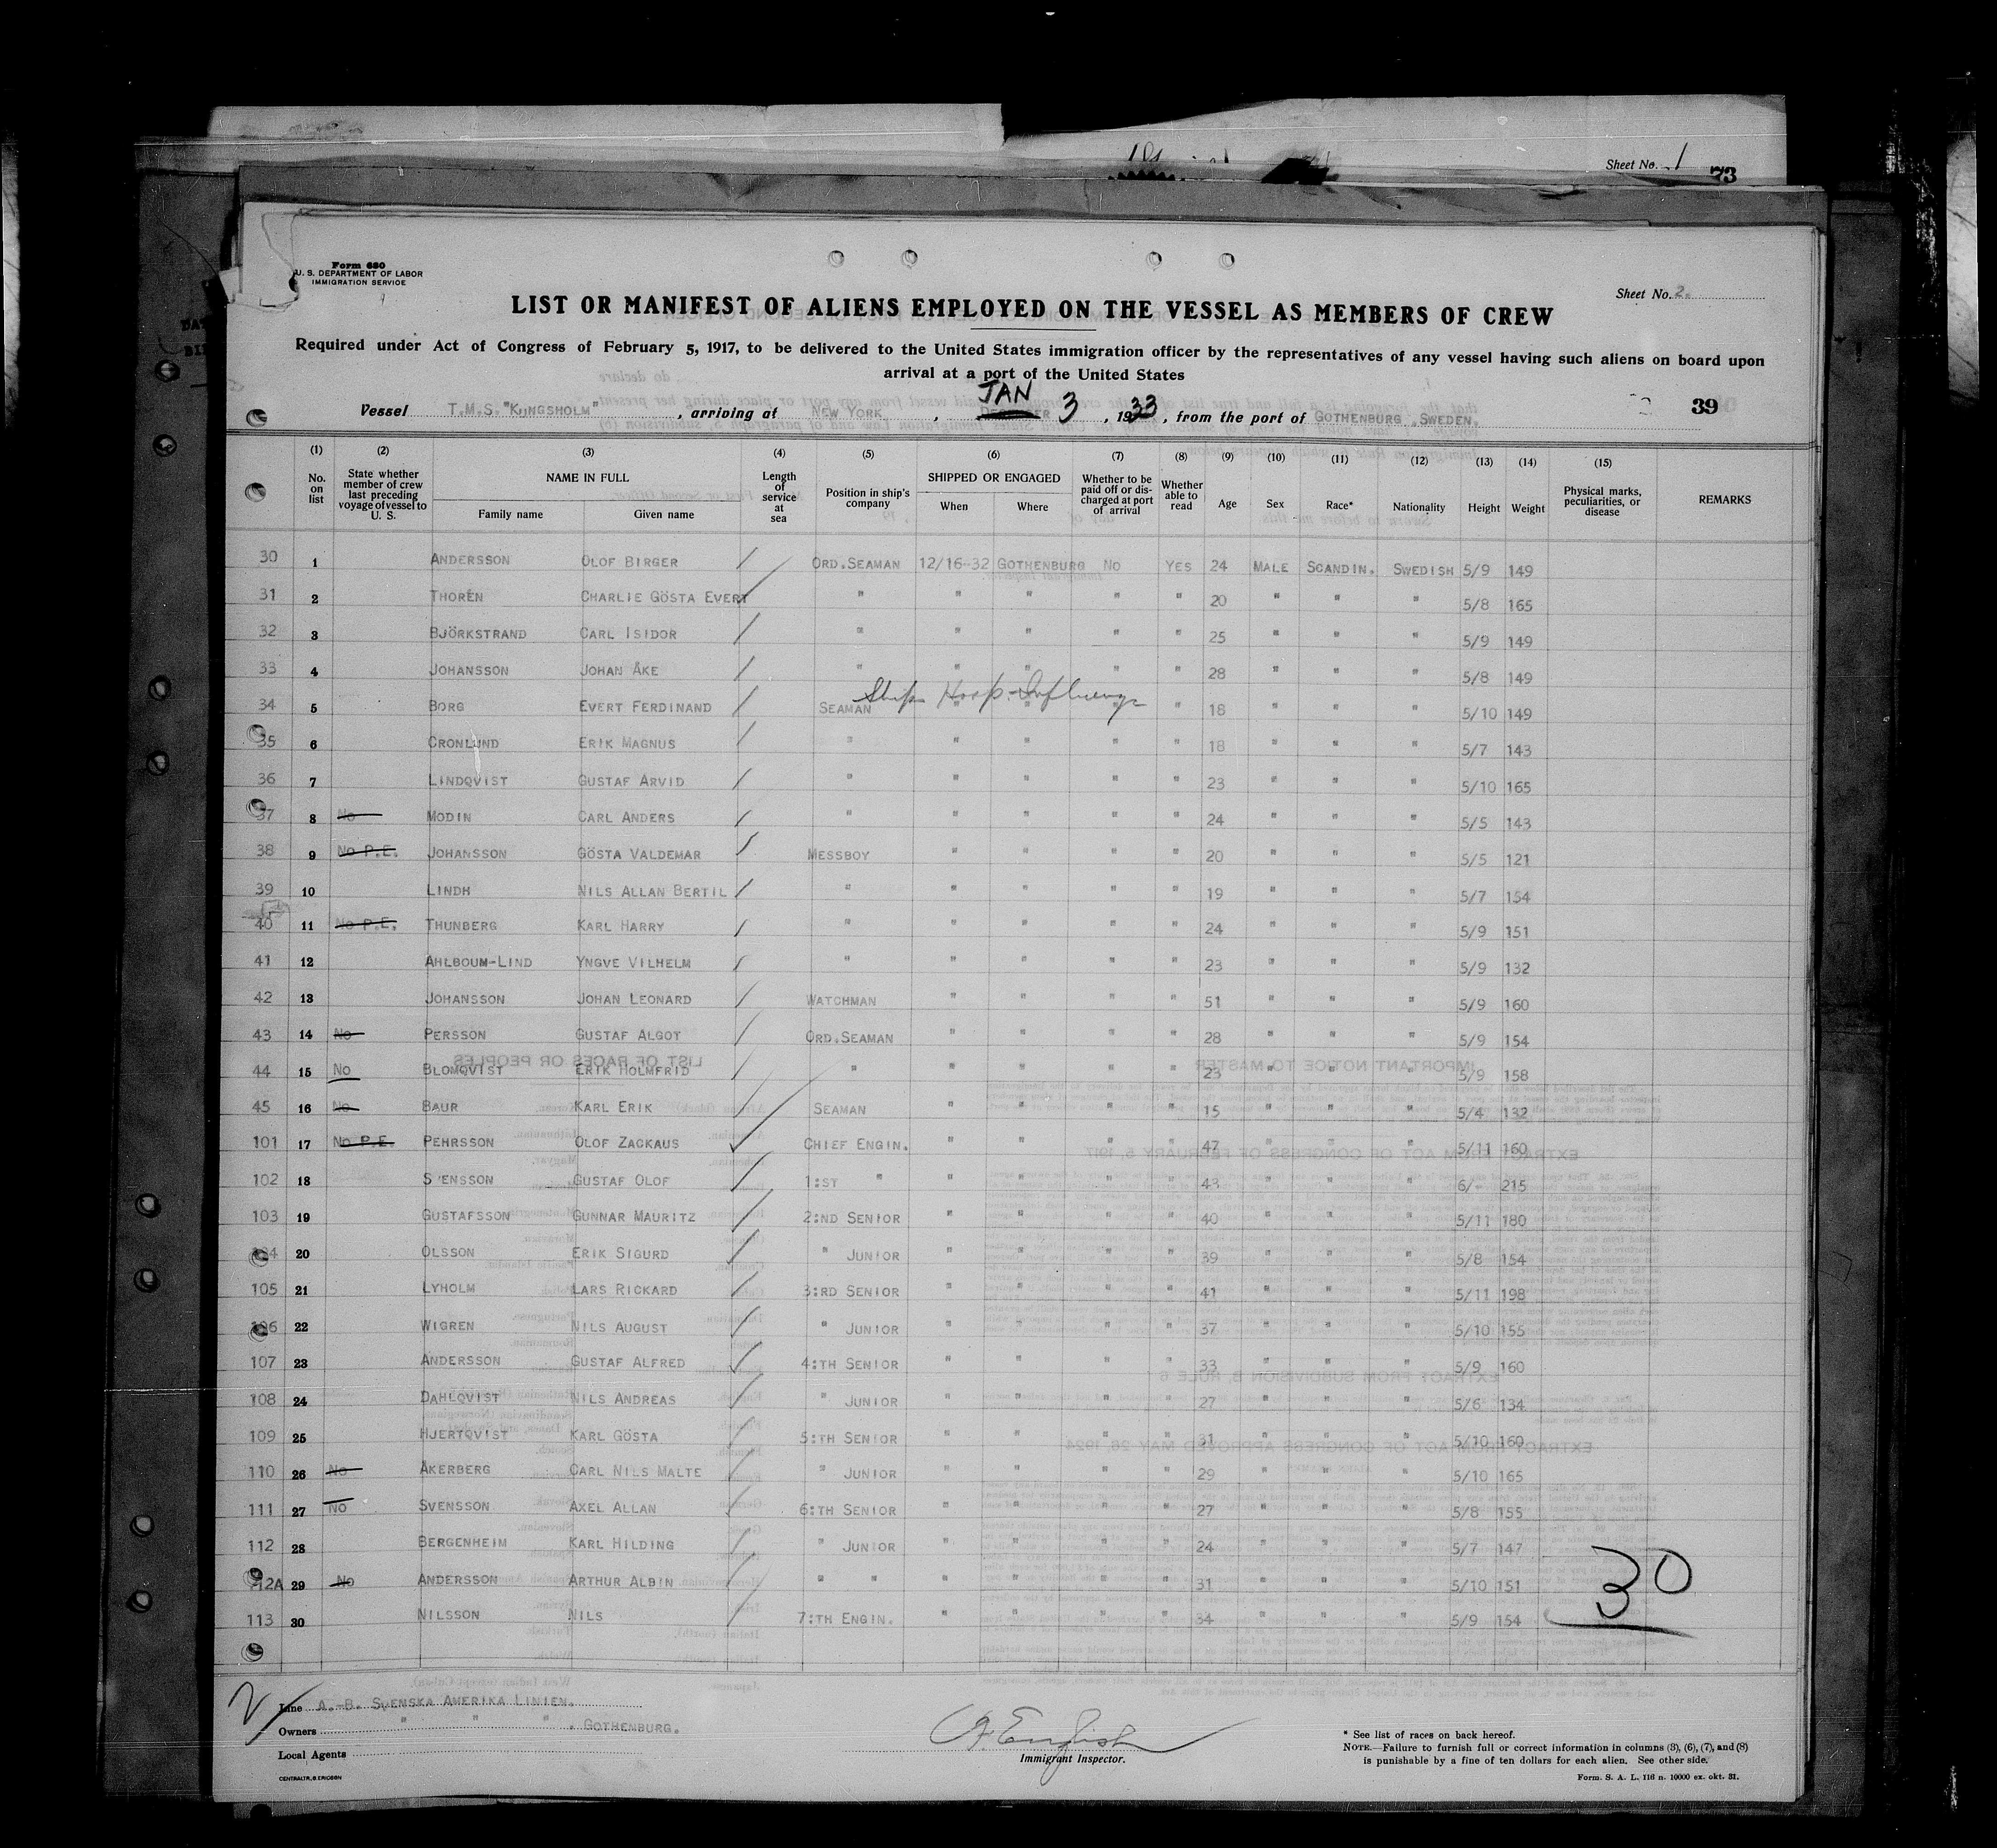 Sheet No. 1
73
Form 680
U. S. DEPARTMENT OF LABOR
IMMIGRATION SERVICE
Sheet No. 2.
LIST OR MANIFEST OF ALIENS EMPLOYED ON THE VESSEL AS MEMBERS OF CREW
Required under Act of Congress of February 5, 1917, to be delivered to the United States immigration officer by the representatives of any vessel having such aliens on board upon
arrival at a port of the United States
Vessel T.M.S."KUNGSHOLM", arriving at NEW YORK, JAN 3, 1933, from the port of GOTHENBURG, SWEDEN. 39
(1) (2) (3) (4) (5) (6) (7) (8) (9) (10) (11) (12) (13) (14) (15)
No. on list State whether member of crew last preceding voyage of vessel to U. S. NAME IN FULL Family name Given name Length of service at sea Position in ship's company SHIPPED OR ENGAGED When Where Whether to be paid off or discharged at port of arrival Whether able to read Age Sex Race* Nationality Height Weight Physical marks, peculiarities, or disease REMARKS
30 1 ANDERSSON OLOF BIRGER ORD.SEAMAN 12/16-32 GOTHENBURG NO YES 24 MALE SCANDIN. SWEDISH 5/9 149
31 2 THORÉN CHARLIE GÖSTA EVERT " " " " " 20 " " " 5/8 165
32 3 BJÖRKSTRAND CARL ISIDOR " " " " " 25 " " " 5/9 149
33 4 JOHANSSON JOHAN ÅKE " " " " " 28 " " " 5/8 149
Ship Hosp-Influenza
34 5 BORG EVERT FERDINAND SEAMAN " " " " 18 " " " 5/10 149
35 6 CRONLUND ERIK MAGNUS " " " " " 18 " " " 5/7 143
36 7 LINDQVIST GUSTAF ARVID " " " " " 23 " " " 5/10 165
37 8 NO MODIN CARL ANDERS " " " " " 24 " " " 5/5 143
38 9 NO P.E. JOHANSSON GÖSTA VALDEMAR MESSBOY " " " " 20 " " " 5/5 121
39 10 LINDH NILS ALLAN BERTIL " " " " " 19 " " " 5/7 154
40 11 NO P.E. THUNBERG KARL HARRY " " " " " 24 " " " 5/9 151
41 12 AHLBOUM-LIND YNGVE VILHELM " " " " " 23 " " " 5/9 132
42 13 JOHANSSON JOHAN LEONARD WATCHMAN " " " " 51 " " " 5/9 160
43 14 NO PERSSON GUSTAF ALGOT ORD.SEAMAN " " " " 28 " " " 5/9 154
44 15 NO BLOMQVIST ERIK HOLMFRID " " " " " 23 " " " 5/9 158
45 16 NO BAUR KARL ERIK SEAMAN " " " " 15 " " " 5/4 132
101 17 NO P.E. PEHRSSON OLOF ZACKAUS CHIEF ENGIN. " " " " 47 " " " 5/11 160
102 18 S ENSSON GUSTAF OLOF 1:ST " " " " " 43 " " " 6/- 215
103 19 GUSTAFSSON GUNNAR MAURITZ 2:ND SENIOR " " " " 40 " " " 5/11 180
104 20 OLSSON ERIK SIGURD " JUNIOR " " " " 39 " " " 5/8 154
105 21 LYHOLM LARS RICKARD 3:RD SENIOR " " " " 41 " " " 5/11 198
106 22 WIGREN NILS AUGUST " JUNIOR " " " " 37 " " " 5/10 155
107 23 ANDERSSON GUSTAF ALFRED 4:TH SENIOR " " " " 33 " " " 5/9 160
108 24 DAHLQVIST NILS ANDREAS " JUNIOR " " " " 27 " " " 5/6 134
109 25 HJERTQVIST KARL GÖSTA 5:TH SENIOR " " " " 31 " " " 5/10 160
110 26 NO ÅKERBERG CARL NILS MALTE " JUNIOR " " " " 29 " " " 5/10 165
111 27 NO SVENSSON AXEL ALLAN 6:TH SENIOR " " " " 27 " " " 5/8 155
112 28 BERGENHEIM KARL HILDING " JUNIOR " " " " 24 " " " 5/7 147
112A 29 NO ANDERSSON ARTHUR ALBIN " " " " " " 31 " " " 5/10 151
113 30 NILSSON NILS 7:TH ENGIN. " " " " 34 " " " 5/9 154
30
Line A.-B. SVENSKA AMERIKA LINIEN.
Owners " " " , GOTHENBURG.
Local Agents
English
Immigrant Inspector.
* See list of races on back hereof.
NOTE.—Failure to furnish full or correct information in columns (3), (6), (7), and (8)
is punishable by a fine of ten dollars for each alien. See other side.
CENTRALTR, G. ERICSON
Form. S. A. L. 116 n. 10000 ex. okt. 31.